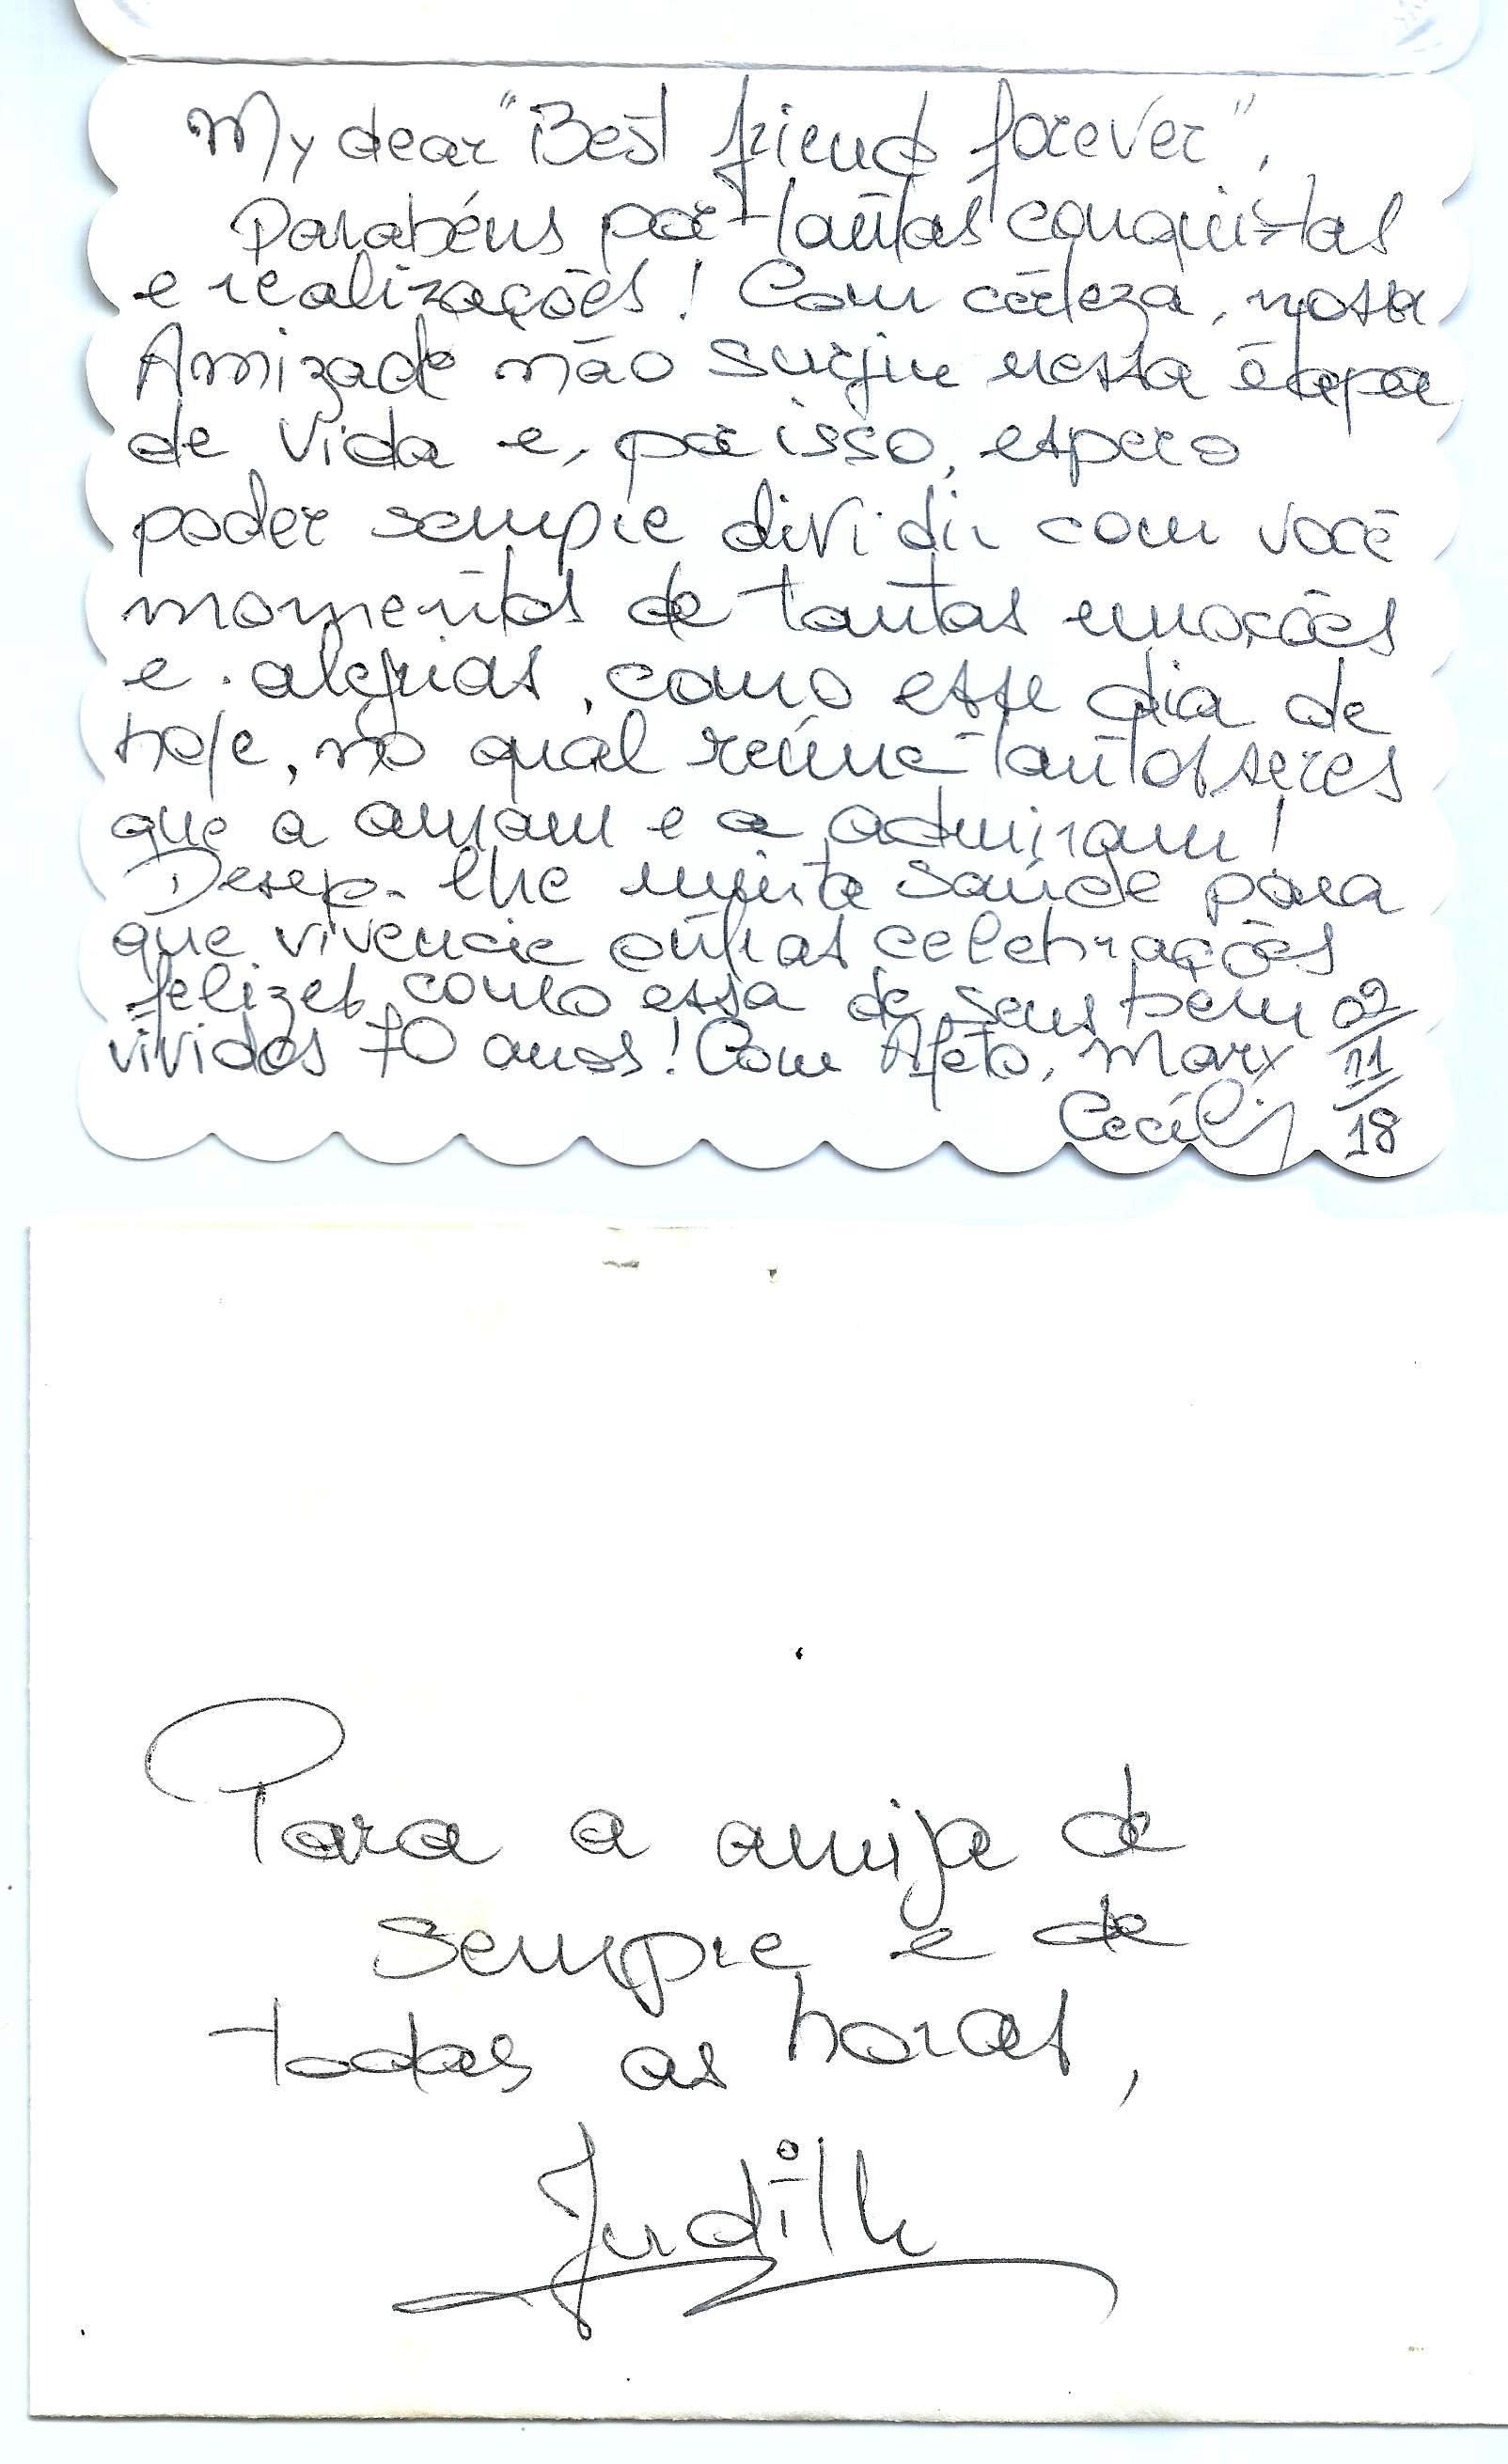 My dear "Best friend forever",
Parabéns por tantas conquistas
e realizações! Com certeza, nossa
Amizade não surgiu nesta etapa
de vida e, por isso, espero
poder sempre dividir com você
momentos de tantas emoções
e alegrias, como esse dia de
hoje, no qual reúne tantos seres
que a amam e a admiram!
Desejo-lhe muita saúde para
que vivencie outras celebrações
felizes como essa de seus bem
vividos 70 anos! Com Afeto, Mary
Cecília
02/11/18
Para a amiga de
sempre e de
todas as horas,
Judith